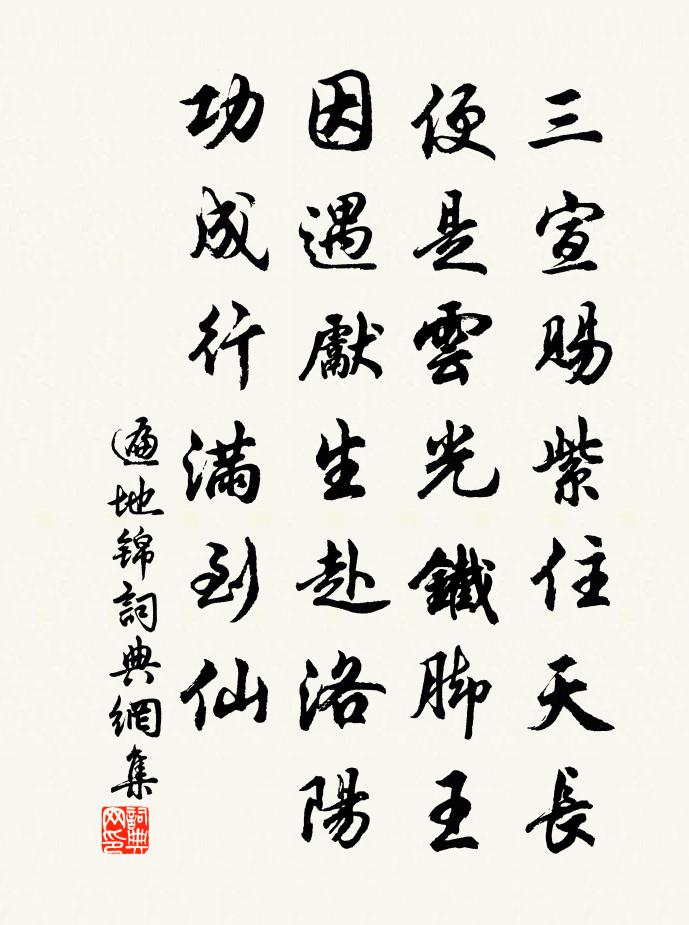 三宣賜紫住天長
便是雲光鐵脚王
因遇獻生赴洛陽
功成行滿到仙
遍地錦詞典網集
詞典网印